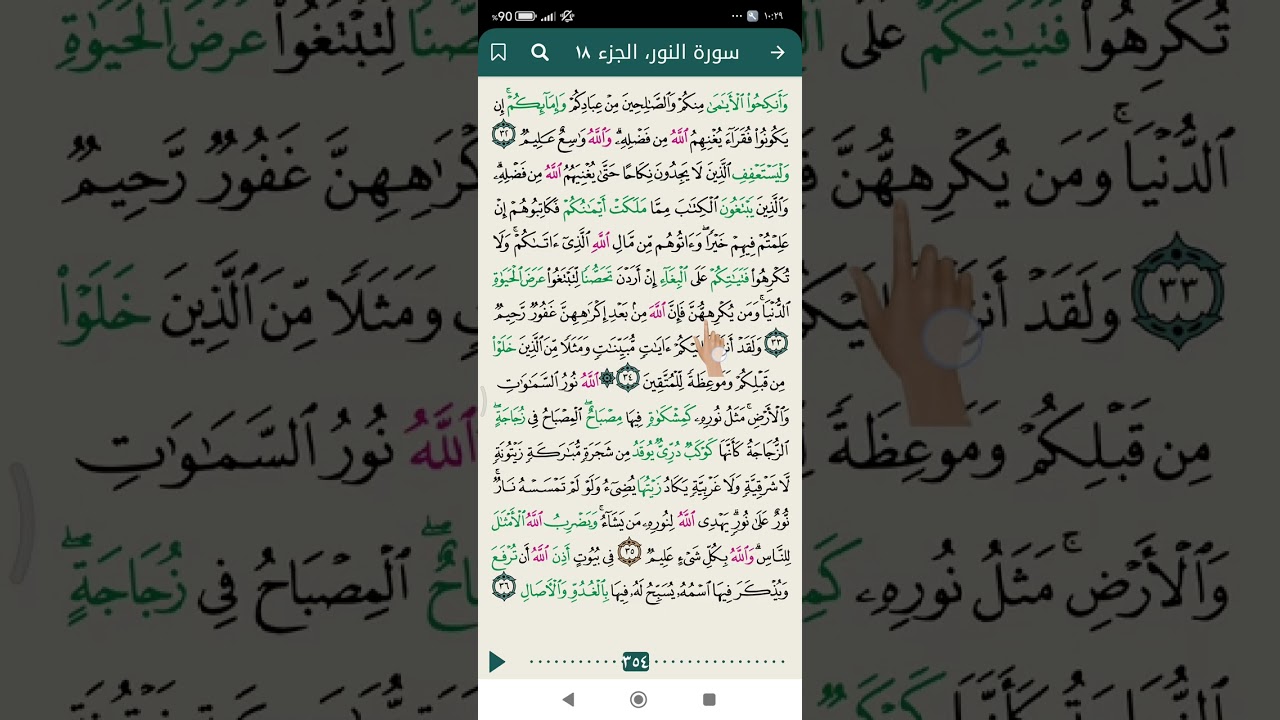 %90
١٠:٢٩
سورة النور، الجزء ١٨
وَأَنكِحُوا۟ ٱلْأَيَـٰمَىٰ مِنكُمْ وَٱلصَّـٰلِحِينَ مِنْ عِبَادِكُمْ وَإِمَآئِكُمْ ۚ إِن
يَكُونُوا۟ فُقَرَآءَ يُغْنِهِمُ ٱللَّهُ مِن فَضْلِهِۦ ۗ وَٱللَّهُ وَٰسِعٌ عَلِيمٌ ٣٢
وَلْيَسْتَعْفِفِ ٱلَّذِينَ لَا يَجِدُونَ نِكَاحًا حَتَّىٰ يُغْنِيَهُمُ ٱللَّهُ مِن فَضْلِهِۦ ۗ
وَٱلَّذِينَ يَبْتَغُونَ ٱلْكِتَـٰبَ مِمَّا مَلَكَتْ أَيْمَـٰنُكُمْ فَكَاتِبُوهُمْ إِنْ
عَلِمْتُمْ فِيهِمْ خَيْرًا ۖ وَءَاتُوهُم مِّن مَّالِ ٱللَّهِ ٱلَّذِىٓ ءَاتَىٰكُمْ ۚ وَلَا
تُكْرِهُوا۟ فَتَيَـٰتِكُمْ عَلَى ٱلْبِغَآءِ إِنْ أَرَدْنَ تَحَصُّنًا لِّتَبْتَغُوا۟ عَرَضَ ٱلْحَيَوٰةِ
ٱلدُّنْيَا ۚ وَمَن يُكْرِههُّنَّ فَإِنَّ ٱللَّهَ مِنۢ بَعْدِ إِكْرَٰهِهِنَّ غَفُورٌ رَّحِيمٌ
٣٣ وَلَقَدْ ءَايَـٰتٍ مُّبَيِّنَـٰتٍ وَمَثَلًا مِّنَ ٱلَّذِينَ خَلَوْا۟
مِن قَبْلِكُمْ وَمَوْعِظَةً لِّلْمُتَّقِينَ ٣٤ ۞ ٱللَّهُ نُورُ ٱلسَّمَـٰوَٰتِ
وَٱلْأَرْضِ ۚ مَثَلُ نُورِهِۦ كَمِشْكَوٰةٍ فِيهَا مِصْبَاحٌ ۖ ٱلْمِصْبَاحُ فِى زُجَاجَةٍ ۖ
ٱلزُّجَاجَةُ كَأَنَّهَا كَوْكَبٌ دُرِّىٌّ يُوقَدُ مِن شَجَرَةٍ مُّبَـٰرَكَةٍ زَيْتُونَةٍ
لَّا شَرْقِيَّةٍ وَلَا غَرْبِيَّةٍ يَكَادُ زَيْتُهَا يُضِىٓءُ وَلَوْ لَمْ تَمْسَسْهُ نَارٌ ۚ
نُّورٌ عَلَىٰ نُورٍ ۗ يَهْدِى ٱللَّهُ لِنُورِهِۦ مَن يَشَآءُ ۚ وَيَضْرِبُ ٱللَّهُ ٱلْأَمْثَـٰلَ
لِلنَّاسِ ۗ وَٱللَّهُ بِكُلِّ شَىْءٍ عَلِيمٌ ٣٥ فِى بُيُوتٍ أَذِنَ ٱللَّهُ أَن تُرْفَعَ
وَيُذْكَرَ فِيهَا ٱسْمُهُۥ يُسَبِّحُ لَهُۥ فِيهَا بِٱلْغُدُوِّ وَٱلْـَٔاصَالِ ٣٦
٣٥٤